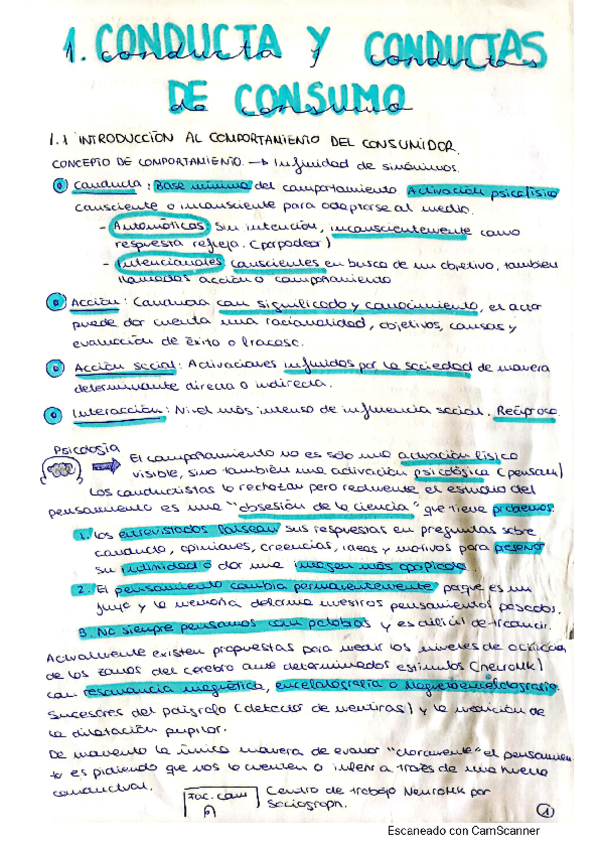 1. CONDUCTA Y CONDUCTAS
DE CONSUMO
1.1 INTRODUCCIÓN AL COMPORTAMIENTO DEL CONSUMIDOR.
CONCEPTO DE COMPORTAMIENTO → Infinidad de sinónimos.
Conducta: Base mínima del comportamiento Activación psicofísica
consciente o inconsciente para adaptarse al medio.
- Automáticos Sin intención, inconscientemente como
respuesta refleja. (parpadear)
- Intencionales conscientes en busca de un objetivo, también
llamados acción o comportamiento
Acción: Conducta con significado y conocimiento, el actor
puede dar cuenta una racionalidad, objetivos, causas y
evaluación de éxito o fracaso.
Acción social: Activaciones influidos por la sociedad de manera
determinante directa o indirecta.
Interacción: Nivel más intenso de influencia social. Recíproco.
Psicología
El comportamiento no es sólo una actuación física
visible, sino también una activación psicológica (pensam)
Los conductistas lo rechazan pero realmente el estudio del
pensamiento es una "obsesión de la ciencia" que tiene problemas:
1. Los entrevistados falsean sus respuestas en preguntas sobre
conducta, opiniones, creencias, ideas y motivos para preservar
su intimidad o dar una imagen más apropiada.
2. El pensamiento cambia permanentemente porque es un
flujo y la memoria deforma nuestros pensamientos pasados.
3. No siempre pensamos con palabras y es difícil
Actualmente existen propuestas para medir los niveles de activación
de las zonas del cerebro ante determinados estímulos (neuroMK)
con resonancia magnética, encefalografía o Magnetoencefalografía.
Sucesores del polígrafo (detector de mentiras) y la medición de
la dilatación pupilar.
De momento la única manera de evaluar "claramente" el pensamien
to es pidiendo que nos lo cuenten o inferir a través de una huella
conductual.
Fac. com
Centro de trabajo NeuroMk por
Sociograph.
1
Escaneado con CamScanner